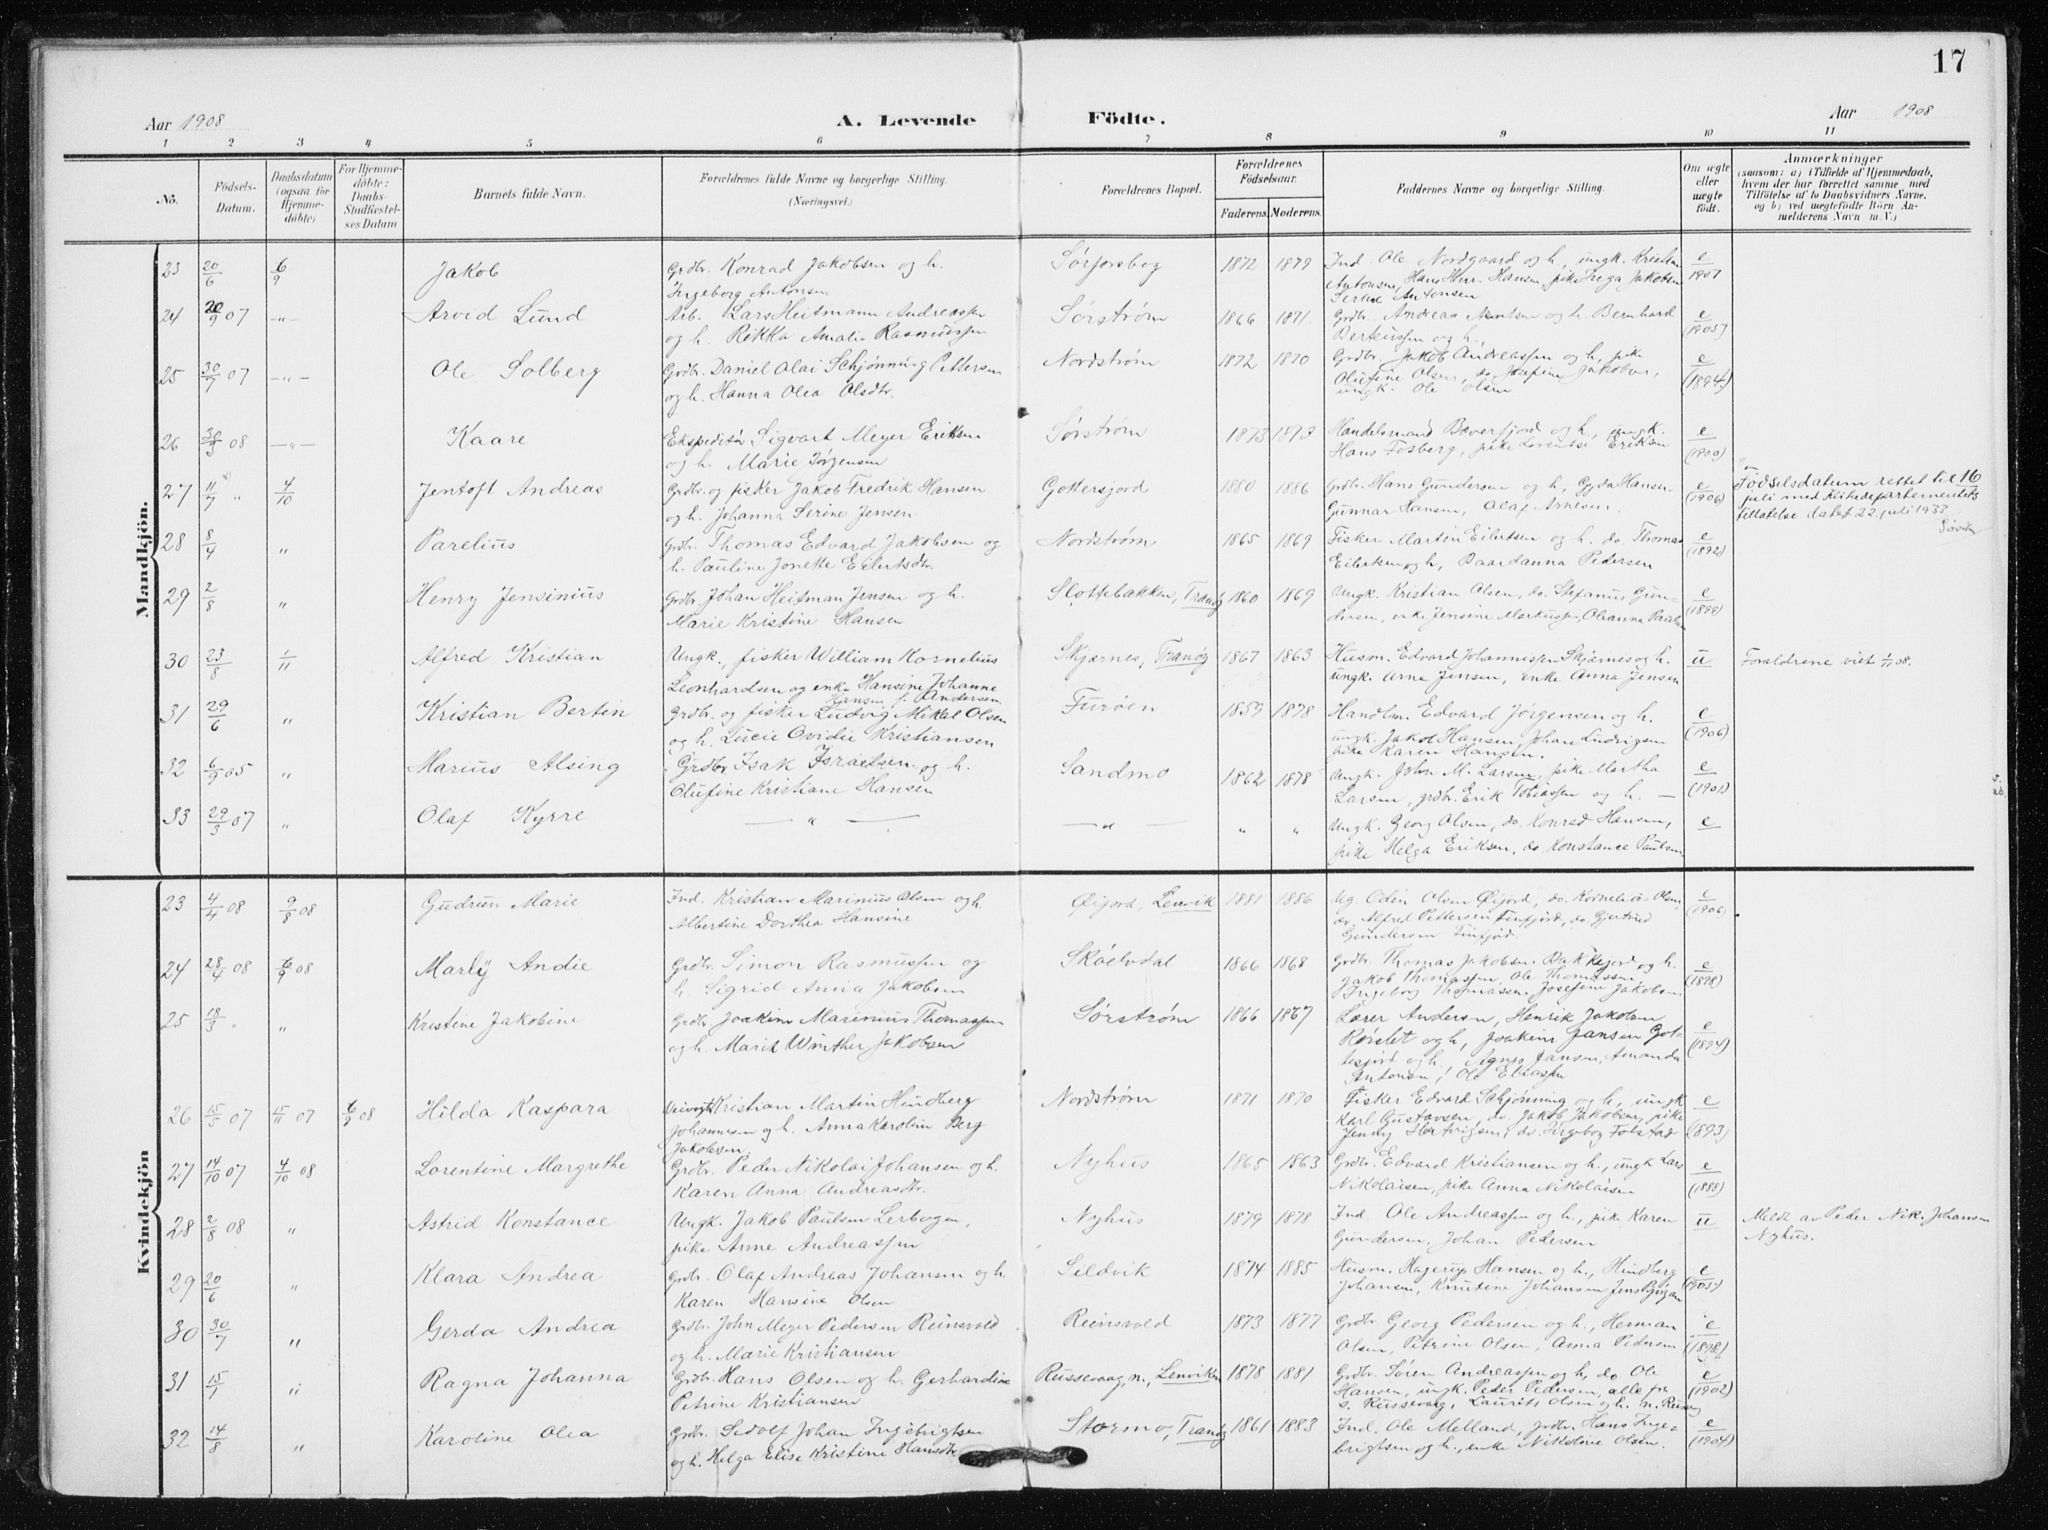 17
Aar 1908
A. Levende Födte.
Aar 1908
1 2 3 4 5 6 7 8 9 10 11
No.
Födsels-Datum.
Daabsdatum (ogsaa for Hjemmedöbte)
For Hjemmedöbte: Daabs-Stadfæstelses Datum
Barnets fulde Navn.
Forældrenes fulde Navne og borgerlige Stilling. (Næringsvei.)
Forældrenes Bopæl.
Forældrenes Födselsaar.
Faderens. Moderens.
Faddernes Navne og borgerlige Stilling.
Om ægte eller uægte födt.
Anmærkninger
(saasom: a) i Tilfælde af Hjemmedaab, hvem der har forrettet samme, med Tilföielse af to Daabsvidners Navne, og b) ved uægtefödte Börn Anmelderens Navn m. V.)
Mandkjön.
23 20/6 6/9 Jakob Grdbr. Konrad Jakobsen og h. Sørforsbog 1872 1879 Ind. Ole Nordgaard og h., ungk. Kristen e
Ingeborg Antonsen Antonsen, Hans Hans Hansen, pike Inga Jakobsen 1907
Antonsen
24 20/9 07 -"- Arvid Lund Lars Heitmann Andreassen Sørstrøm 1866 1871 Grdbr. Andreas og h. Bernhard e
og h. Rikka Amalie Rasmussen og h., (1905)
25 30/7 07 -"- Ole Solberg Grdbr. Daniel Olai Schjønning Pettersen Nordstrøm 1872 1870 Grdbr. Jakob Andreassen og h., pike e
og h. Hanna Olea Olsdtr. Olufine Olsen, do. Josefine Jakobsen, (1894)
ungk. Ole Olsen
26 08 -"- Kaare Ekspeditør Sigvart Meyer Eriksen Sørstrøm 1873 1873 Handelsmand Bæverfjord og h., ungk. e
og h. Marie Jørgensen Hans Fosberg, pike Lorentse Eriksen (1900)
27 11/7 " 4/10 Jentoft Andreas Grdbr. og fisker Jakob Fredrik Hansen Gottersjord 1880 1886 Grdbr. Hans Gundersen og h., Gyda Hansen e Födselsdatum rettet til 16
og h. Johanna Serine Jensen Gunnar Hansen, Olaf Arnesen. (1906) juli med Kirkedepartementets
tillatelse datet 22 juli 1933
28 8/4 " Parelius Grdbr. Thomas Edvard Jakobsen og Nordstrøm 1865 1869 Fisker Martin Eilertsen og h. do. Thomas e
h. Pauline Jonette Eilertsdtr. Eilertsen og h., Daardanna Pedersen (1892)
29 2/8 " Henry Jensinius Grdbr. Johan Heitman Jensen og h. Slottebakken, Tranøy 1860 1869 Ungk. Kristian Olsen, do. Stefanus Gun- e
Marie Kristine Hansen dersen, enke Jensine Markussen, Oleanna Paulsen (1899)
30 23/8 1/11 Alfred Kristian Ungk., fisker William Kornelius Skjærnes, Tranøy 1867 1863 Husm. Edvard Johannessen Skjærnes og h. u Forældrene viet 1/11 08.
Leonhardsen og enke Hansine Johanne ungk. Arne Jensen, enke Anna Jensen
Hansen f. Andersen
31 29/6 " Kristian Bertin Grdbr. og fisker Ludvig Mikal Olsen Furöen 1859 1878 Handlm. Edvard Jørgensen og h. e
og h. Lucie Ovidie Kristiansen ungk. Jakob Hansen, Johan Ludvigsen (1906)
pike Karen Hansen.
32 6/9 05 " Marius Alsing Grdbr. Isak Israelsen og h. Sandmo 1862 1878 Ungk. John M. Larsen, pike Martha e
Olufine Kristiane Hansen Larsen, grdbr. Erik Tobiassen og h. — (1901)
33 29/3 07 " Olaf Kyrre — " — — " — " " Ungk. Georg Olsen, do. Konrad Hansen, e
pike Helga Eriksen, do. Konstance Paulsen
Kvindekjön
23 4/4 08 9/8 08 Gudrun Marie Ind. Kristian Marinius Olsen og h. Øijord, Lenvik 1881 1886 Ug. Odin Olsen Øijord, do. Kornelius Olsen, e
Albertine Dorthea Hansine do. Alfred Pettersen Finfjord, do. Gjertrud (1906)
Gundersen Finfjord.
24 28/4 08 6/9 08 Marly Andie Grdbr. Simon Rasmussen og Skøelvdal 1866 1868 Grdbr. Thomas Jakobsen og h. e
h. Sigrid Anna Jakobsen Jakob Thomassen, Ole Thomassen (1898)
Ingeborg Thomassen Josefine Jakobsen
25 18/3 " " Kristine Jakobine Grdbr. Joakim Marinius Thomassen Sørstrøm 1866 1867 Lærer Andersen, Henrik Jakobsen e
og h. Marit Winther Jakobsen og h, Joakim Jansen Got- (1894)
tesjord og h. Agnes Jansen, Amanda
Antonsen, Ole Eliassen
26 15/5 07 15/11 07 6/9 08 Hilda Kaspara Kristian Martin Hindberg Nordstrøm 1871 1870 Fisker Edvard Schjønning og h, ungk. e
Johannesen og h. Anna Karolin Berg Karl Gustavsen, do. Jakob Jakobsen, pike (1893)
Jakobsen. Jenny Hartvigsen, do. Ingebog Folstad
27 14/10 07 4/10 08 Lorentine Margrethe Grdbr. Peder Nikolai Johansen og h. Nyhus 1865 1863 Grdbr. Edvard Kristiansen og h., ungk Lars e
Karen Anna Andreasdtr. Nikolaisen, pike Anna Nikolaisen (1888)
28 2/8 08 " Astrid Konstance Ungk. Jakob Paulsen Lerbogen, Nyhus 1879 1878 Ind. Ole Andreassen og h., pike Karen u Meldt av Peder Nik. Johansen
pike Anne Andreassen Gundersen, Johan Pedersen Nyhus.
29 20/6 " Klara Andrea Grdbr. Olaf Andreas Johansen og h. Seldvik 1874 1885 Husm. Hagerup Hansen og h., Hindberg e
Karen Hansine Olsen Johansen, Knutine Johansen (1905)
30 30/7 " Gerda Andrea Grdbr. John Meyer Pedersen Reinsvold Reinsvold 1873 1877 Grdbr Georg Pedersen og h., Herman e
og h. Marie Kristiansen Olsen, Petrine Olsen, Anna Pedersen (1898)
31 15/1 " Ragna Johanna Grdbr. Hans Olsen og h. Gerhardine Russevaag, n., Lenviken 1878 1881 Grdbr. Søren Andreassen og h., do Ole e
Petrine Kristiansen Hansen, ungk. Peder Pedersen, alle fra (1902)
s. Russevaag, Laurits Olsen og h. n. Russevg
32 14/8 " Karoline Olea Grdbr. Sedolf Johan Ingebrigtsen Stormo, Tranøy 1861 1883 Ind. Ole Melland, grdbr. Hans Inge- e
og h. Helga Elise Kristine Hansdtr. brigtsen og h., enke Nikoline Olsen. (1904)